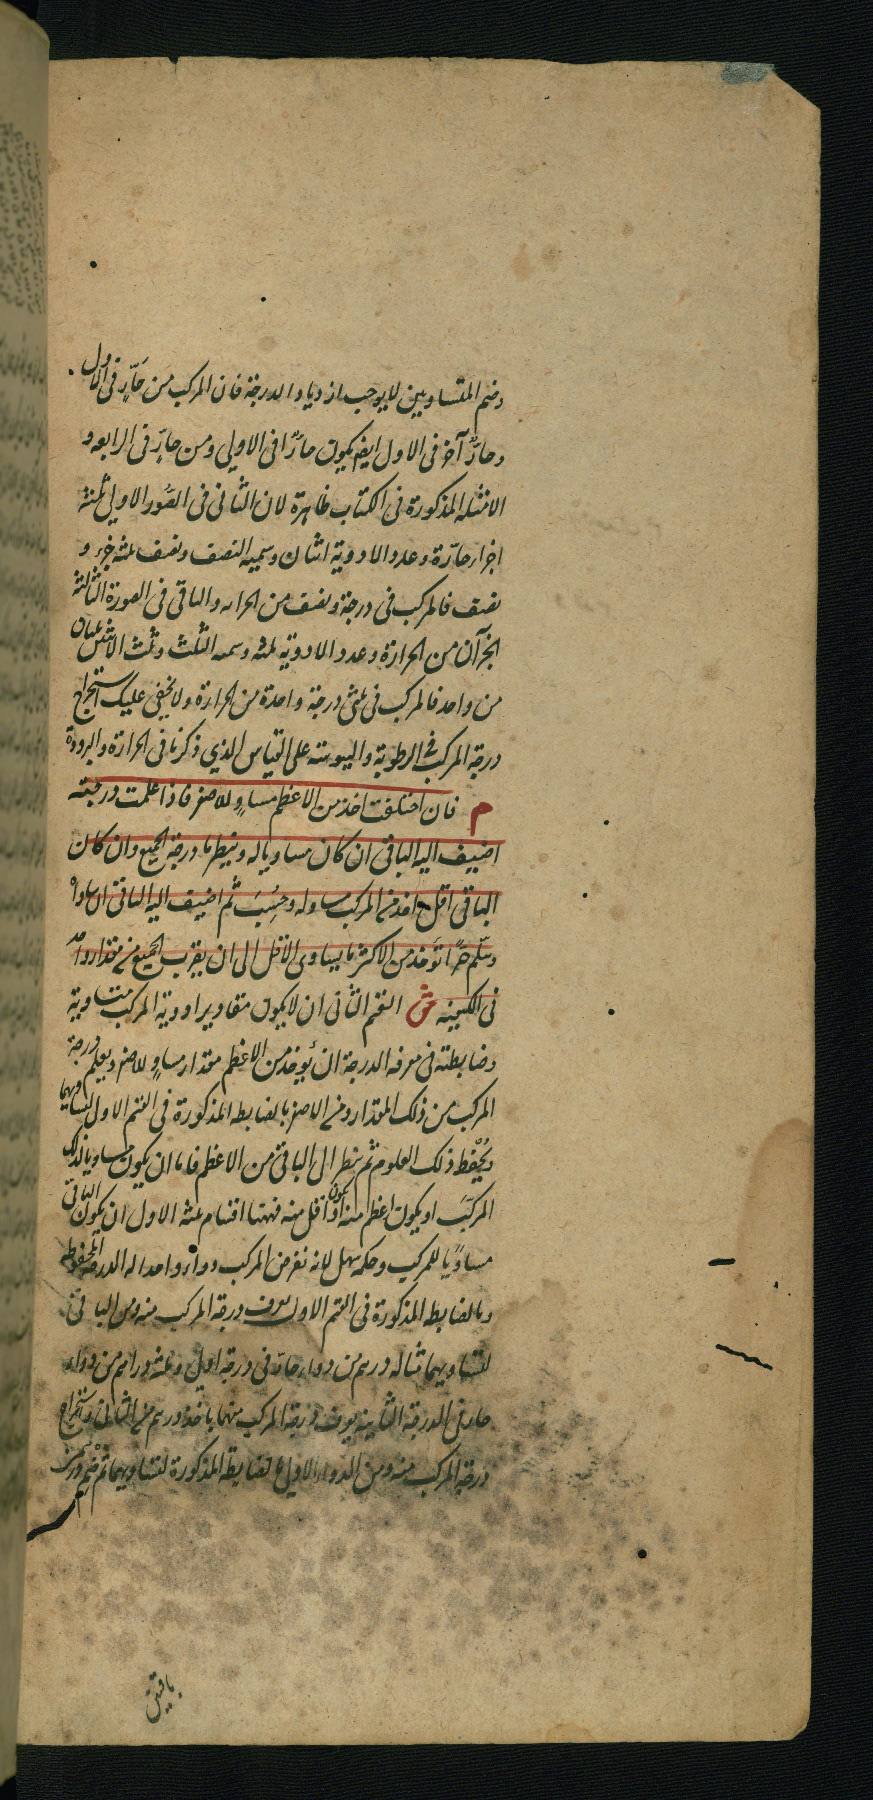 وضم المتساويين لا يوجب ازدياد الدرجة فان المركب من حارٍّ فى الاول
وحارٍّ آخر فى الاول ايضا يكون حارًّا فى الاولى ومن حارٍّ فى الرابعه و
الامثله المذكورة فى الكتاب ظاهرة لان الثانى فى الصور الاولى ثلثة
اجزاء حارّة وعدد الادوية اثنان وسميه النصف ونصف ثلثه جزء و
نصف فالمركب فى درجة ونصف من الحراره والباقى فى الصورة الثالثة
الجزآن من الحرارة وعدد الادويه ثلثه وسميه الثلث وثلث الاثنين ثلثان
من واحد فالمركب فى ثلثى درجة واحدة من الحرارة ولا يخفى عليك استخراج
درجة المركب فى الرطوبة واليبوسه على القياس الذي ذكرنا فى الحرارة والبرودة
م فان اختلفت اخذ من الاعظم مساوٍ للاصغر فاذا علمت درجته
اضيف اليه الباقى ان كان مساويا له وينظر ما درجة الجميع وان كان
الباقى اقل اخذ من المركب مساو له وحُسِبَ ثم اضيف اليه الباقى ان ساواه
وهلم جرًّا تؤخذ من الاكثر ما يساوى الاقل الى ان يقرب الجميع من مقدار واحد
فى الكيفية ش القسم الثانى ان لا يكون مقادير ادوية المركب متساوية
وضابطته فى معرفه الدرجة ان يُوخذ من الاعظم مقدار مساوٍ للاصغر ويعلم درجة
المركب من ذلك المقدار ومن الاصغر بالضابطه المذكورة فى القسم الاول لتساويهما
ويُحْفظ ذلك المعلوم ثم ينظر الى الباقى من الاعظم فاما ان يكون مساويا لذلك
المركّب او يكون اعظم منه او يكون اقل منه فههنا اقسام ثلثه الاول ان يكون الباقى
مساويًا للمركب وحكمه سهل لانه نفرض المركب دواء واحدا له الدرجة المحفوظه
وبالضابطه المذكورة فى القسم الاول نعرف درجة المركب منه ومن الباقى
لتساويهما مثاله درهم من دواء حارّ فى درجة اولى وثلثه دراهم من دواء
حار فى الدرجة الثانيه يعرف درجة المركب منهما باخذ درهم من الثانى واستخراج
درجة المركب منه ومن الدواء الاول بالضابطه المذكورة لتساويهما ثم ضم درهمين
باقيين